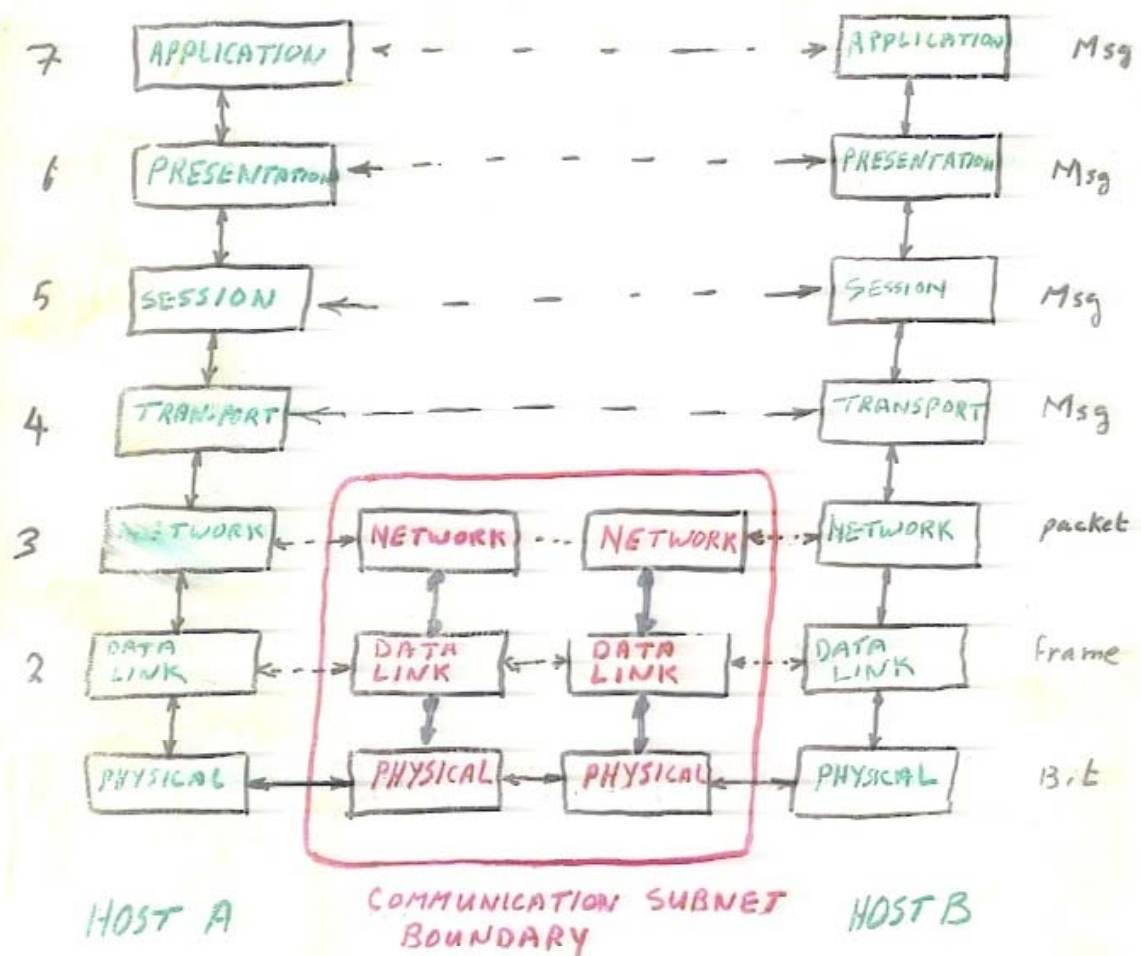 7 APPLICATION APPLICATION Msg
6 PRESENTATION PRESENTATION Msg
5 SESSION SESSION Msg
4 TRANSPORT TRANSPORT Msg
3 NETWORK NETWORK NETWORK NETWORK packet
DATA DATA DATA DATA
2 LINK LINK LINK LINK Frame
PHYSICAL PHYSICAL PHYSICAL PHYSICAL Bit
HOST A COMMUNICATION SUBNET HOST B
BOUNDARY